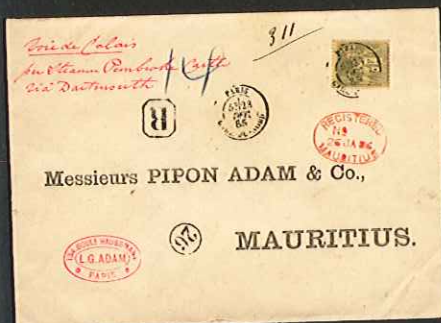 Voie de Calais
per Steamer Pembroke Castle
via Dartmouth
14
311
R
PARIS
REGISTERED
No
26 JA 86
MAURITIUS
Messieurs PIPON ADAM & Co.,
26
MAURITIUS.
L.G. ADAM
PARIS